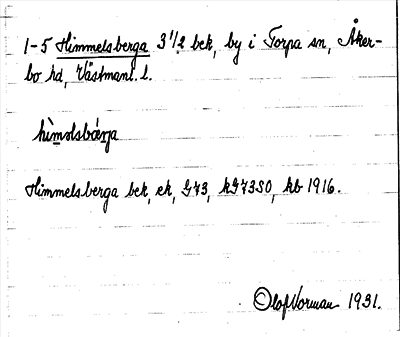 1-5 Himmelsberga 3 1/2 bek, by i Torpa sn, Åker-
bo hd, Västmanl. l.
Himmelsberga bek, ek, G43, kG43SO, kb 1916.
Olof Norman 1931.